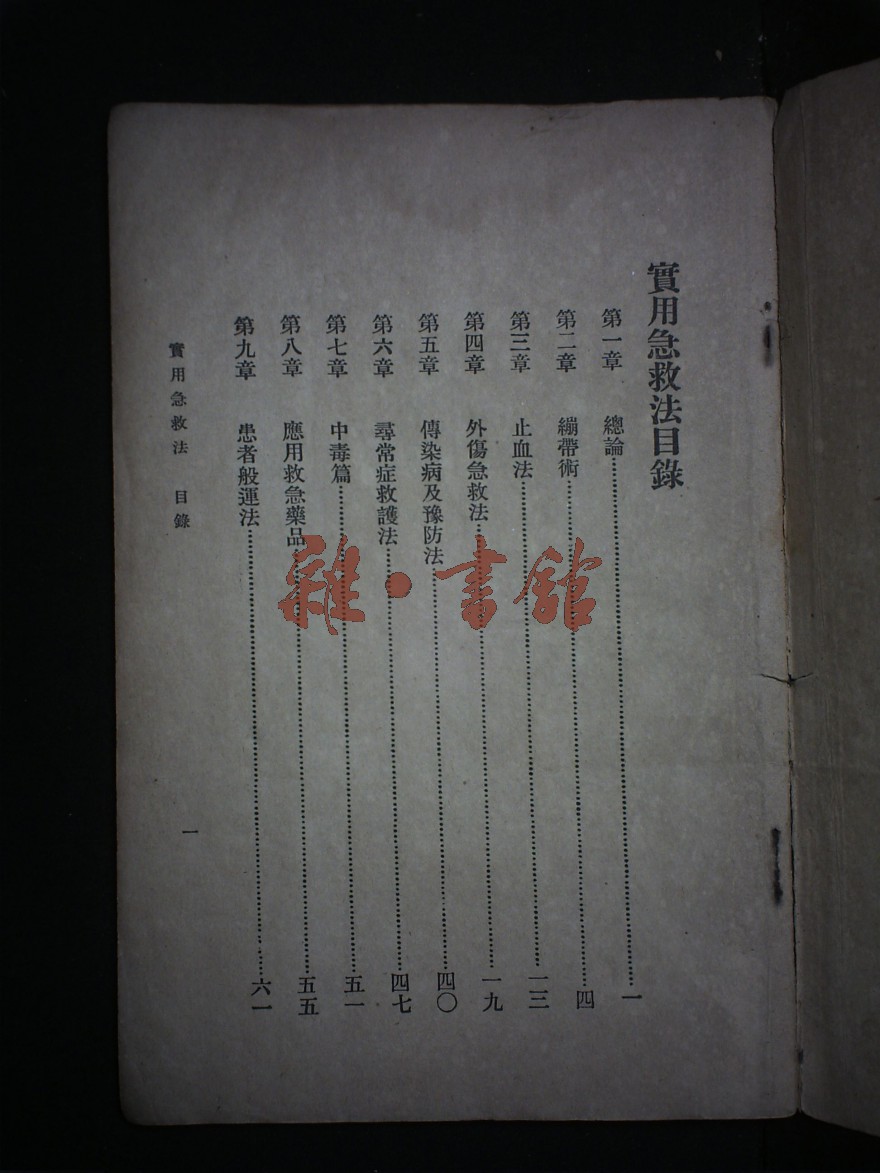 實用急救法目錄
第一章 總論……一
第二章 繃帶術……四
第三章 止血法……一三
第四章 外傷急救法……一九
第五章 傳染病及豫防法……四〇
第六章 尋常症救護法……四七
第七章 中毒篇……五一
第八章 應用救急藥品……五五
第九章 患者般運法……六一
實用急救法 目錄
一
雜·書館